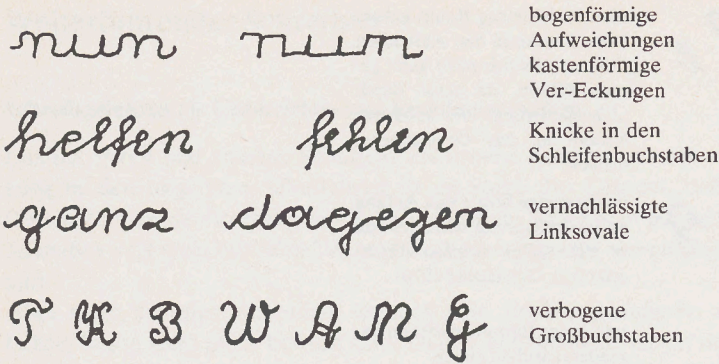 bogenförmige
nun nun Aufweichungen
kastenförmige
Ver-Eckungen
helfen fehlen Knicke in den
Schleifenbuchstaben
ganz dagegen vernachlässigte
Linksovale
T K B W A N G verbogene
Großbuchstaben